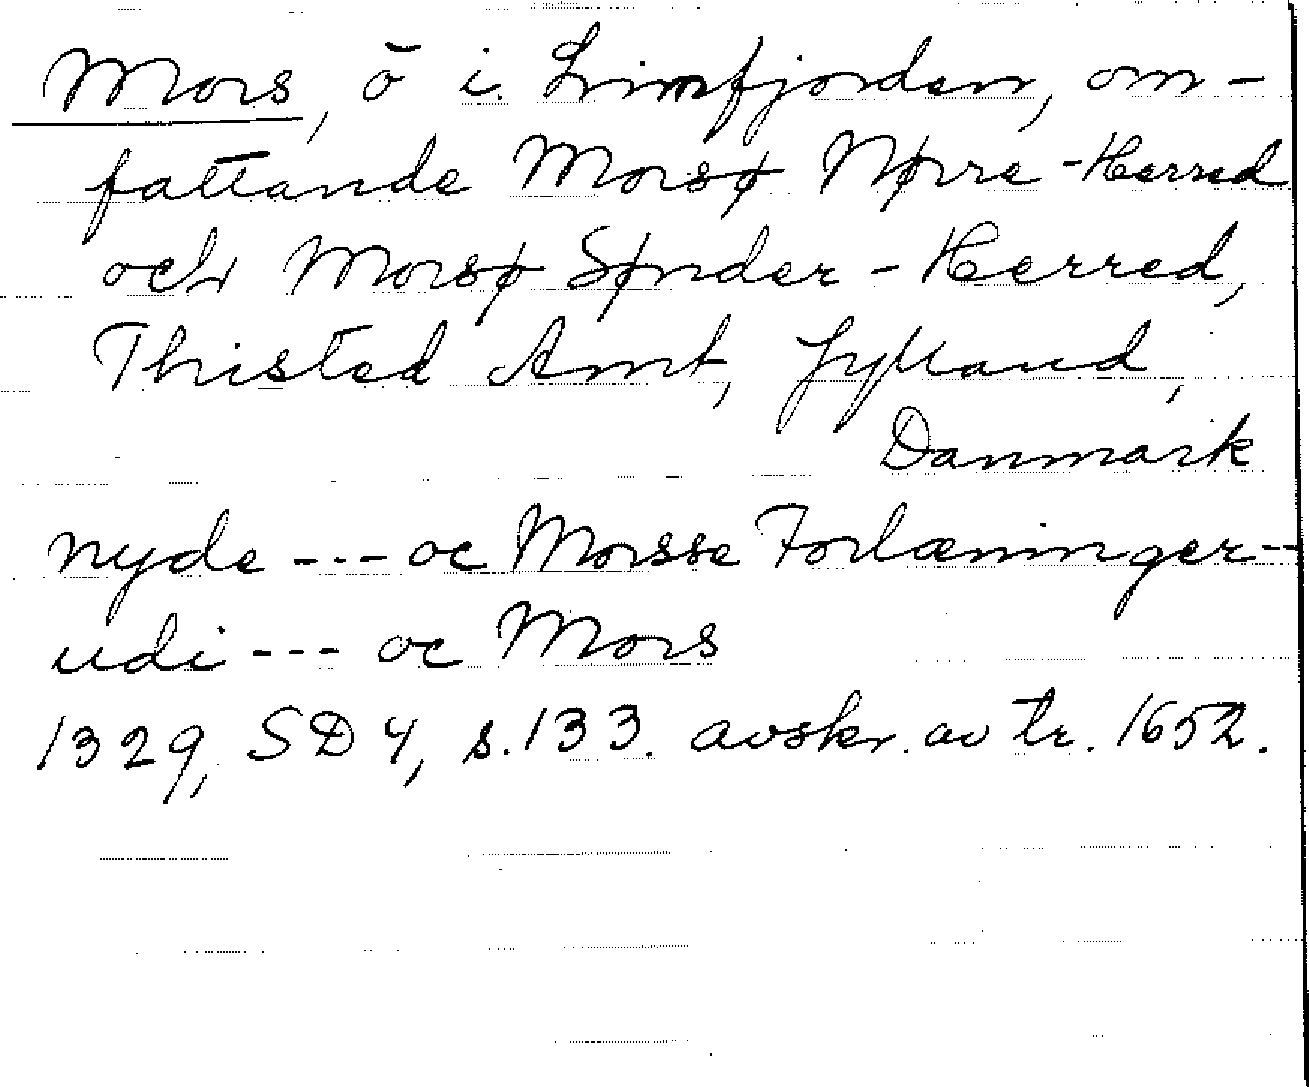 Mors, ö i. Limfjorden, om-
fattande Morsø Nørre-Herred
och Morsø Sønder-Herred,
Thisted Amt, Jylland,
Danmark
nyde --- oc Morsse Forlæninger--
udi --- oc Mors
1329, SD 4, s. 133. avskr. av tr. 1652.